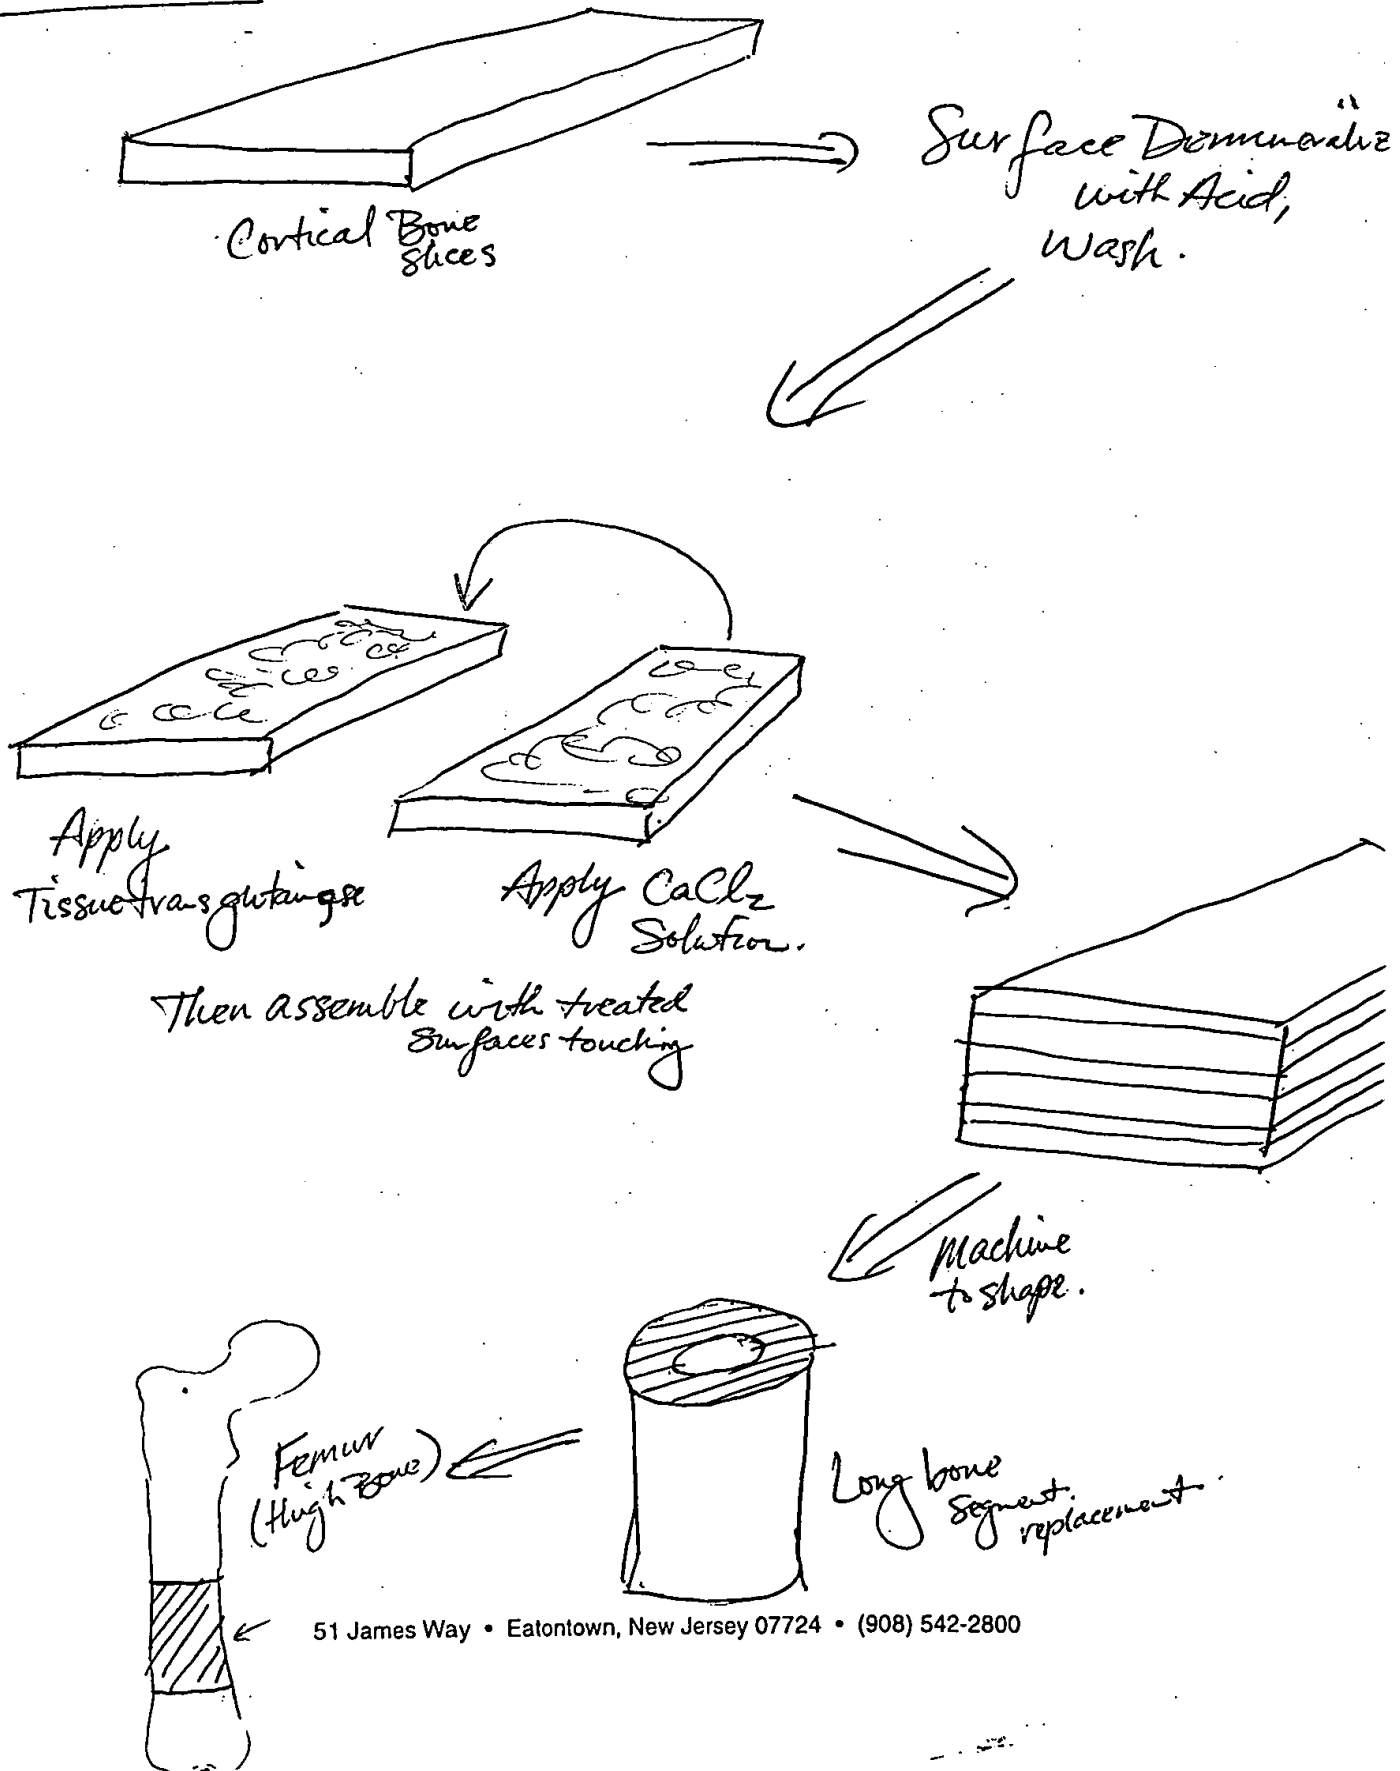 Cortical Bone
slices
Surface Demineralize
with Acid,
Wash.
Apply
Tissue transglutaminase
Apply CaCl2
Solution.
Then assemble with treated
surfaces touching
Machine
to shape.
Long bone
segment
replacement.
Femur
(thigh Bone)
51 James Way • Eatontown, New Jersey 07724 • (908) 542-2800